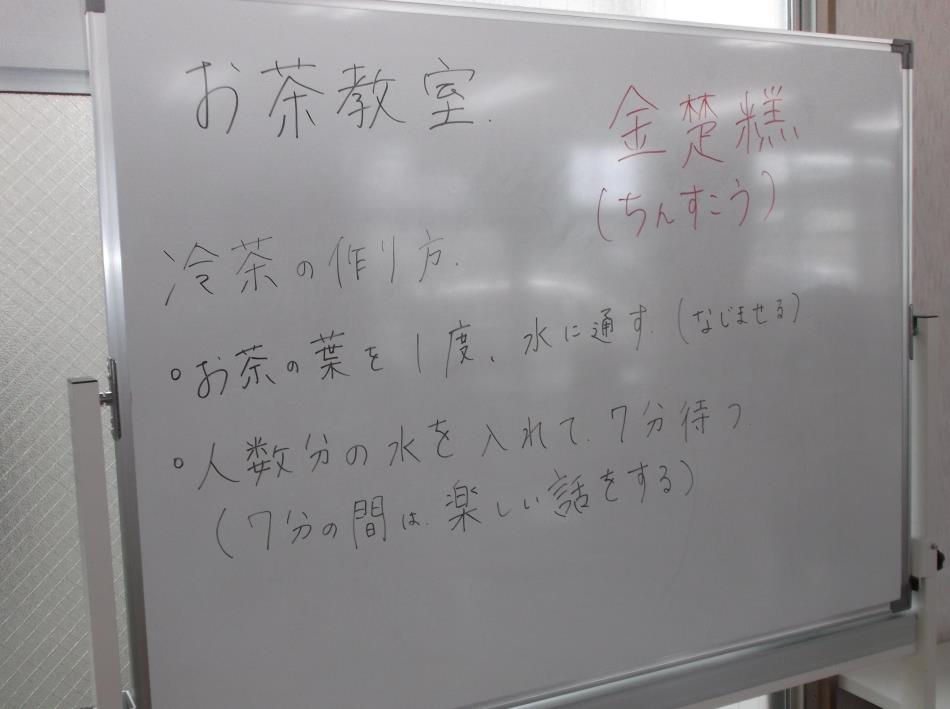 お茶教室.
金楚糕
(ちんすこう)
冷茶の作り方.
○お茶の葉を1度、水に通す.(なじませる)
○人数分の水を入れて.7分待つ.
(7分の間は.楽しい話をする)